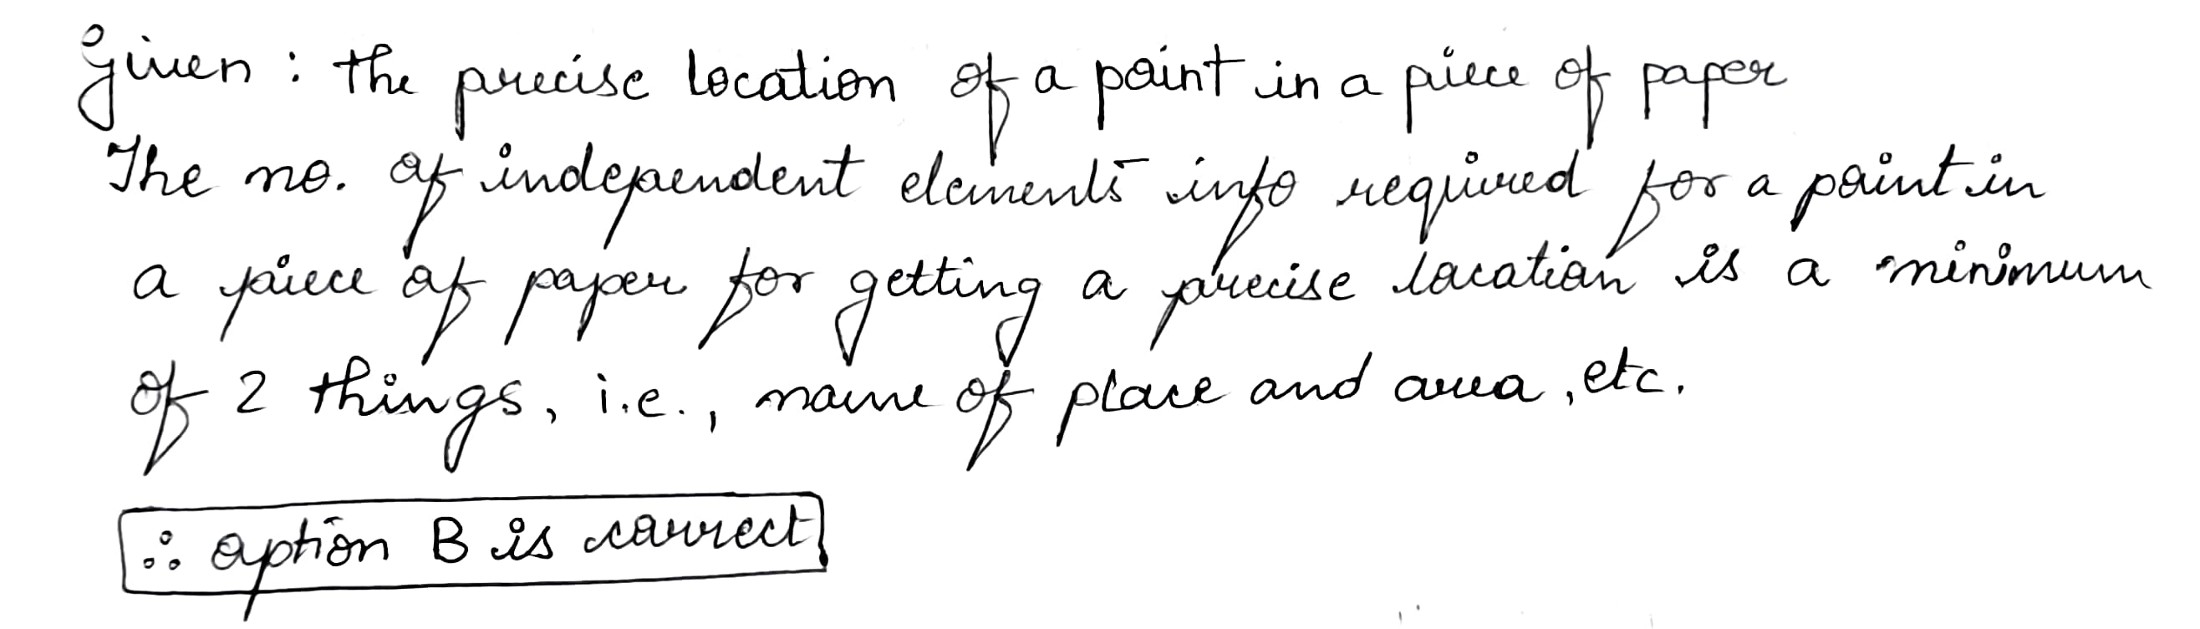 Given : the precise location of a point in a piece of paper
The no. of independent elements info required for a point in
a piece of paper for getting a precise location is a minimum
of 2 things, i.e., name of place and area, etc.
∴ option B is correct